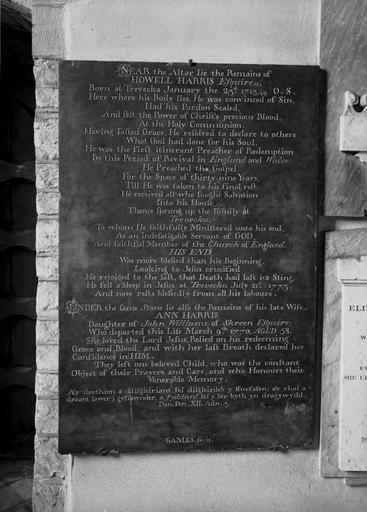 NEAR the Altar lie the Remains of
HOWELL HARRIS Esquire,
Born at Trevecka January the 23d 1713/14 O. S.
Here where his Body lies, He was convinced of Sin,
Had his Pardon Sealed,
And felt the Power of Christ's precious Blood,
At the Holy Communion.
Having Tasted Grace, He resolved to declare to others
What God had done for his Soul.
He was the first itinerant Preacher of Redemption
In this Period of Revival in England and Wales.
He Preached the Gospel
For the Space of thirty-nine Years,
Till He was taken to his final rest.
He received all who sought Salvation
Into his House
Thence sprung up the Family at
Trevecka,
To whom He faithfully Ministered unto his end,
As an indefatigable Servant of GOD,
And faithful Member of the Church of England.
HIS END
Was more blessed than his Beginning.
Looking to Jesus crucified
He rejoiced to the last, that Death had lost its Sting.
He fell a Sleep in Jesus at Trevecka July 21st 1773,
And now rests blessedly from all his labours.
UNDER the same Stone lie also the Remains of his late Wife
ANN HARRIS
Daughter of John Williams, of Skreen Esquire;
Who departed this Life March 9th 1770, AGED 58.
She loved the Lord Jesus, Relied on his redeeming
Grace and Blood, and with her last Breath declared her
Confidence in HIM.
They left one beloved Child, who was the constant
Object of their Prayers and Care, and who Honours their
Venerable Memory.
A'r doethion a ddisgleiriant fel disgleirdeb y ffurfafen; a'r rhai a
droant lawer i gyfiawnder, a fyddant fel y Sêr byth yn dragywydd.
Dan. Pen. XII. Adn. 3.
GAMES fecit.